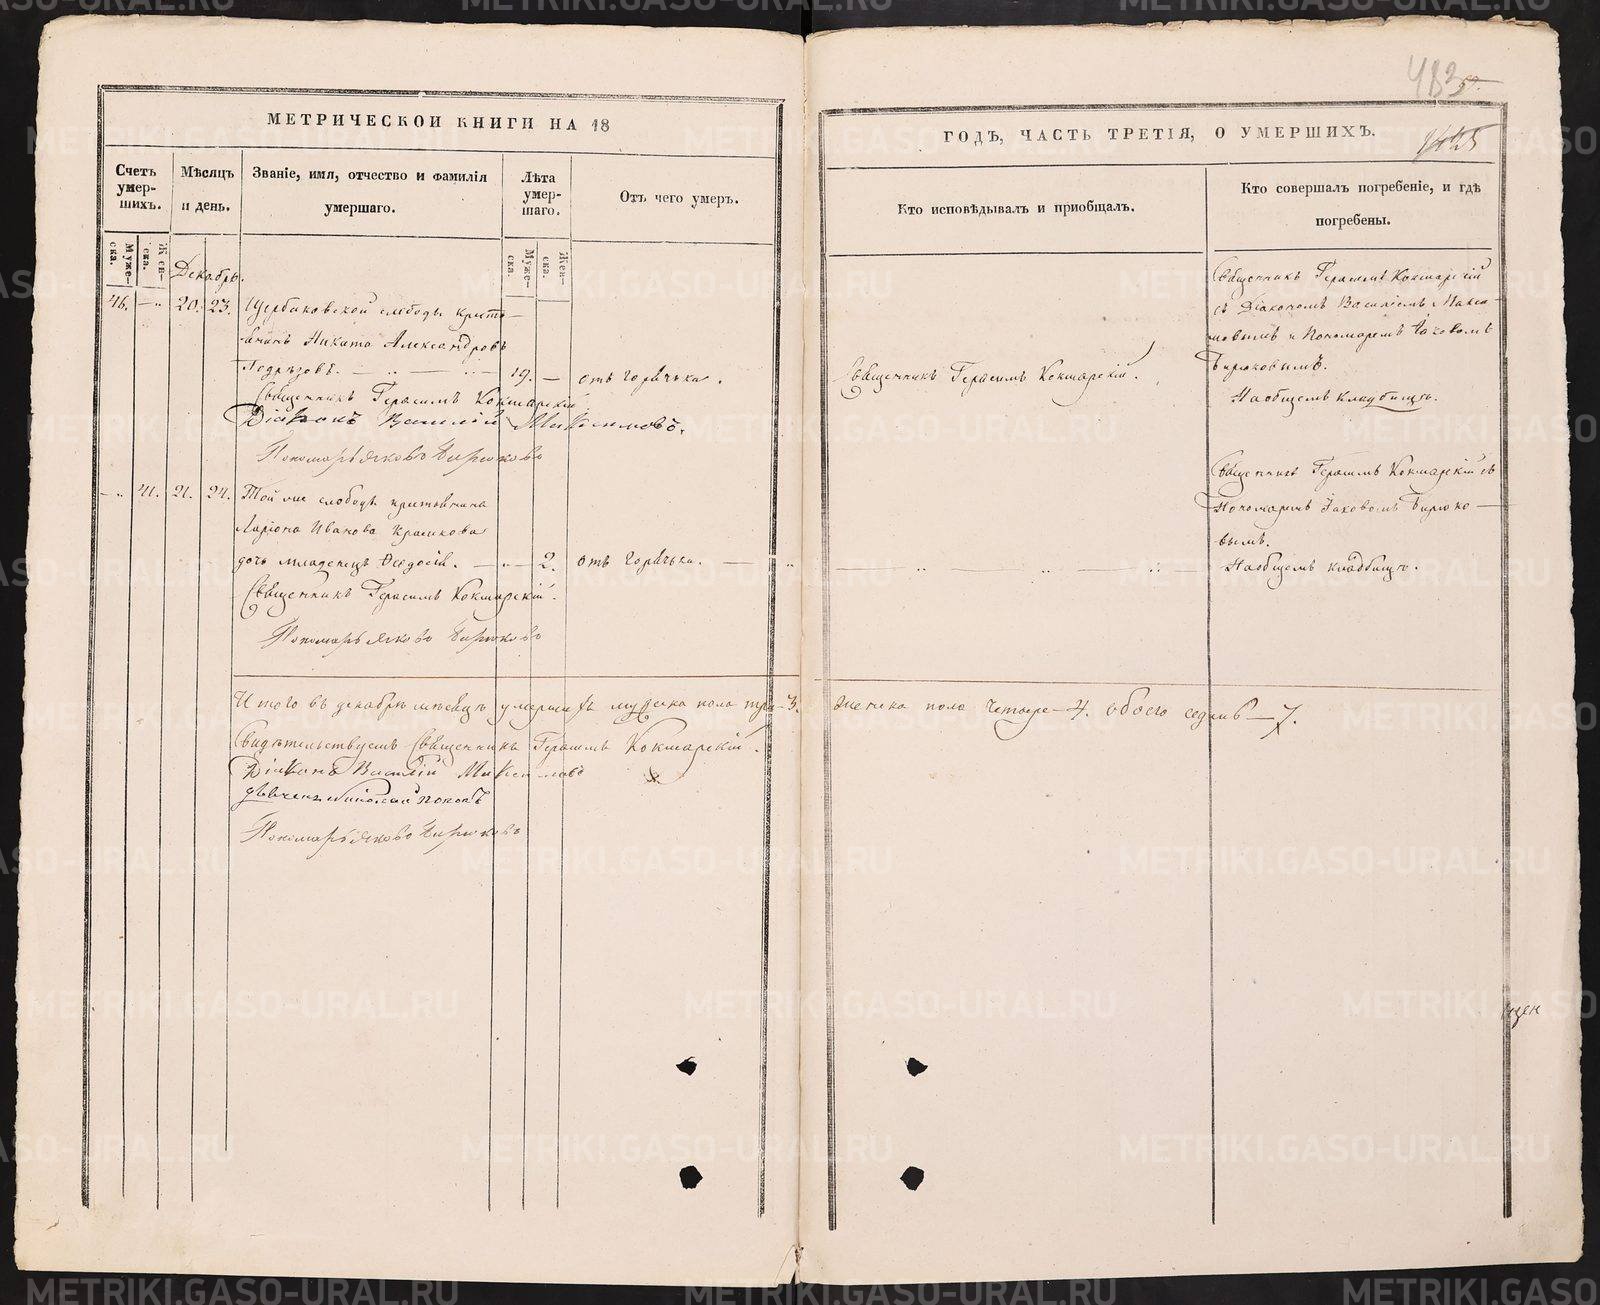 МЕТРИЧЕСКОЙ КНИГИ НА 18
Счетъ умер-шихъ.
Муже-ска.
Жен-ска.
Мѣсяцъ и день.
Званіе, имя, отчество и фамилія умершаго.
Лѣта умер-шаго.
Муже-ска.
Жен-ска.
Отъ чего умеръ.
Декабрь.
46. — 20. 23. Щербаковской слободы кресть-
янинъ Никита Александровъ
Подрѣзовъ. — 19. — отъ горячька.
Священникъ Герасимъ Кокшарскій
Діаконъ Василій Максимовъ.
Пономарь Яковъ Бирюковъ
— 41. 21. 24. Той же слободы крестьянина
Ларіона Иванова Крысикова
дочь младенецъ Ѳедосія. — 2. отъ горячька. —
Священникъ Герасимъ Кокшарскій.
Пономарь Яковъ Бирюковъ
Итого въ декабрѣ мѣсяцѣ умершихъ мужеска пола три — 3.
Свидѣтельствуемъ Священникъ Герасимъ Кокшарскій.
Діаконъ Василій Максимовъ
Николай Поповъ
Пономарь Яковъ Бирюковъ
483
ГОДЪ, ЧАСТЬ ТРЕТІЯ, О УМЕРШИХЪ.
Кто исповѣдывалъ и приобщалъ.
Кто совершалъ погребеніе, и гдѣ погребены.
Священникъ Герасимъ Кокшарскій.
Священникъ Герасимъ Кокшарскій
съ Діакономъ Василіемъ Макси-
мовымъ и Пономаремъ Іаковомъ
Бирюковымъ.
На общемъ кладбищѣ.
Священникъ Герасимъ Кокшарскій съ
Пономаремъ Іаковомъ Бирюко-
вымъ.
На общемъ кладбищѣ.
женска пола четыре — 4. обоего седмь — 7.
METRIKI.GASO-URAL.RU